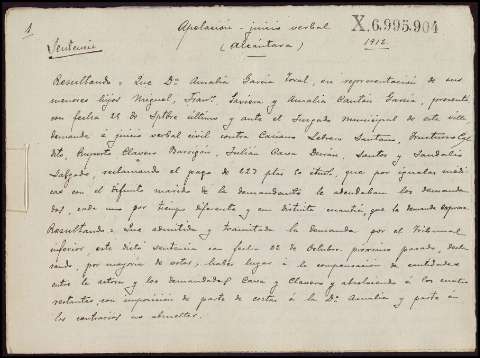 1.
Apelación = juicio verbal
X.6.995.904
Sentencia
(Alcántara)
1912.
Resultando = Que Dª Amalia García Toval, en representación de sus
menores hijos Miguel, Franº. Javiera y Amalia Gaitán García, presentó
con fecha 25 de Sptbre último y ante el Juzgado municipal de esta villa
demanda á juicio verbal civil contra Casiano Lobato Santano, Fructuoso
dito, Augusto Clavero Barrigón, Julián Casa Durán, Santos y Sandalio
Salgado, reclamando el pago de 127 ptas 50 que por igualas médi
cas con el difunto marido de la demandante le adeudaban los demanda
dos, cada uno por tiempo diferente y en distinta cuantía, que la demanda expresa
Resultando = Que admitida y tramitada la demanda por el Tribunal
inferior este dictó sentencia con fecha 22 de Octubre próximo pasado, decla
rando, por mayoría de votos, haber lugar á la compensación de cantidades
entre la actora y los demandados Casa y Clavero y absolviendo á los cuatro
restantes con imposición de parte de costas á la Dª Amalia y parte á
los contrarios no absueltos.